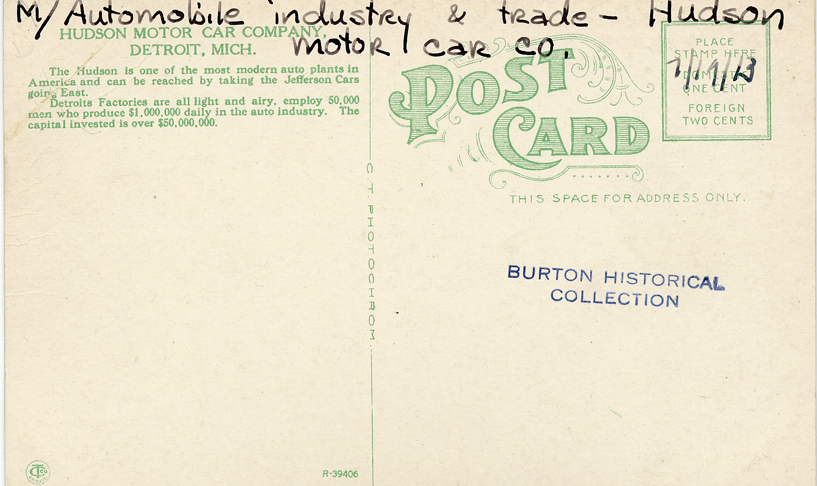 M/Automobile industry & trade - Hudson
motor car co.
HUDSON MOTOR CAR COMPANY,
DETROIT, MICH.
The Hudson is one of the most modern auto plants in
America and can be reached by taking the Jefferson Cars
going East.
Detroits Factories are all light and airy, employ 50,000
men who produce $1,000,000 daily in the auto industry. The
capital invested is over $50,000,000.
C T PHOTOCHROM
R-39406
POST
CARD
PLACE
STAMP HERE
DOMESTIC
ONE CENT
FOREIGN
TWO CENTS
THIS SPACE FOR ADDRESS ONLY.
BURTON HISTORICAL
COLLECTION